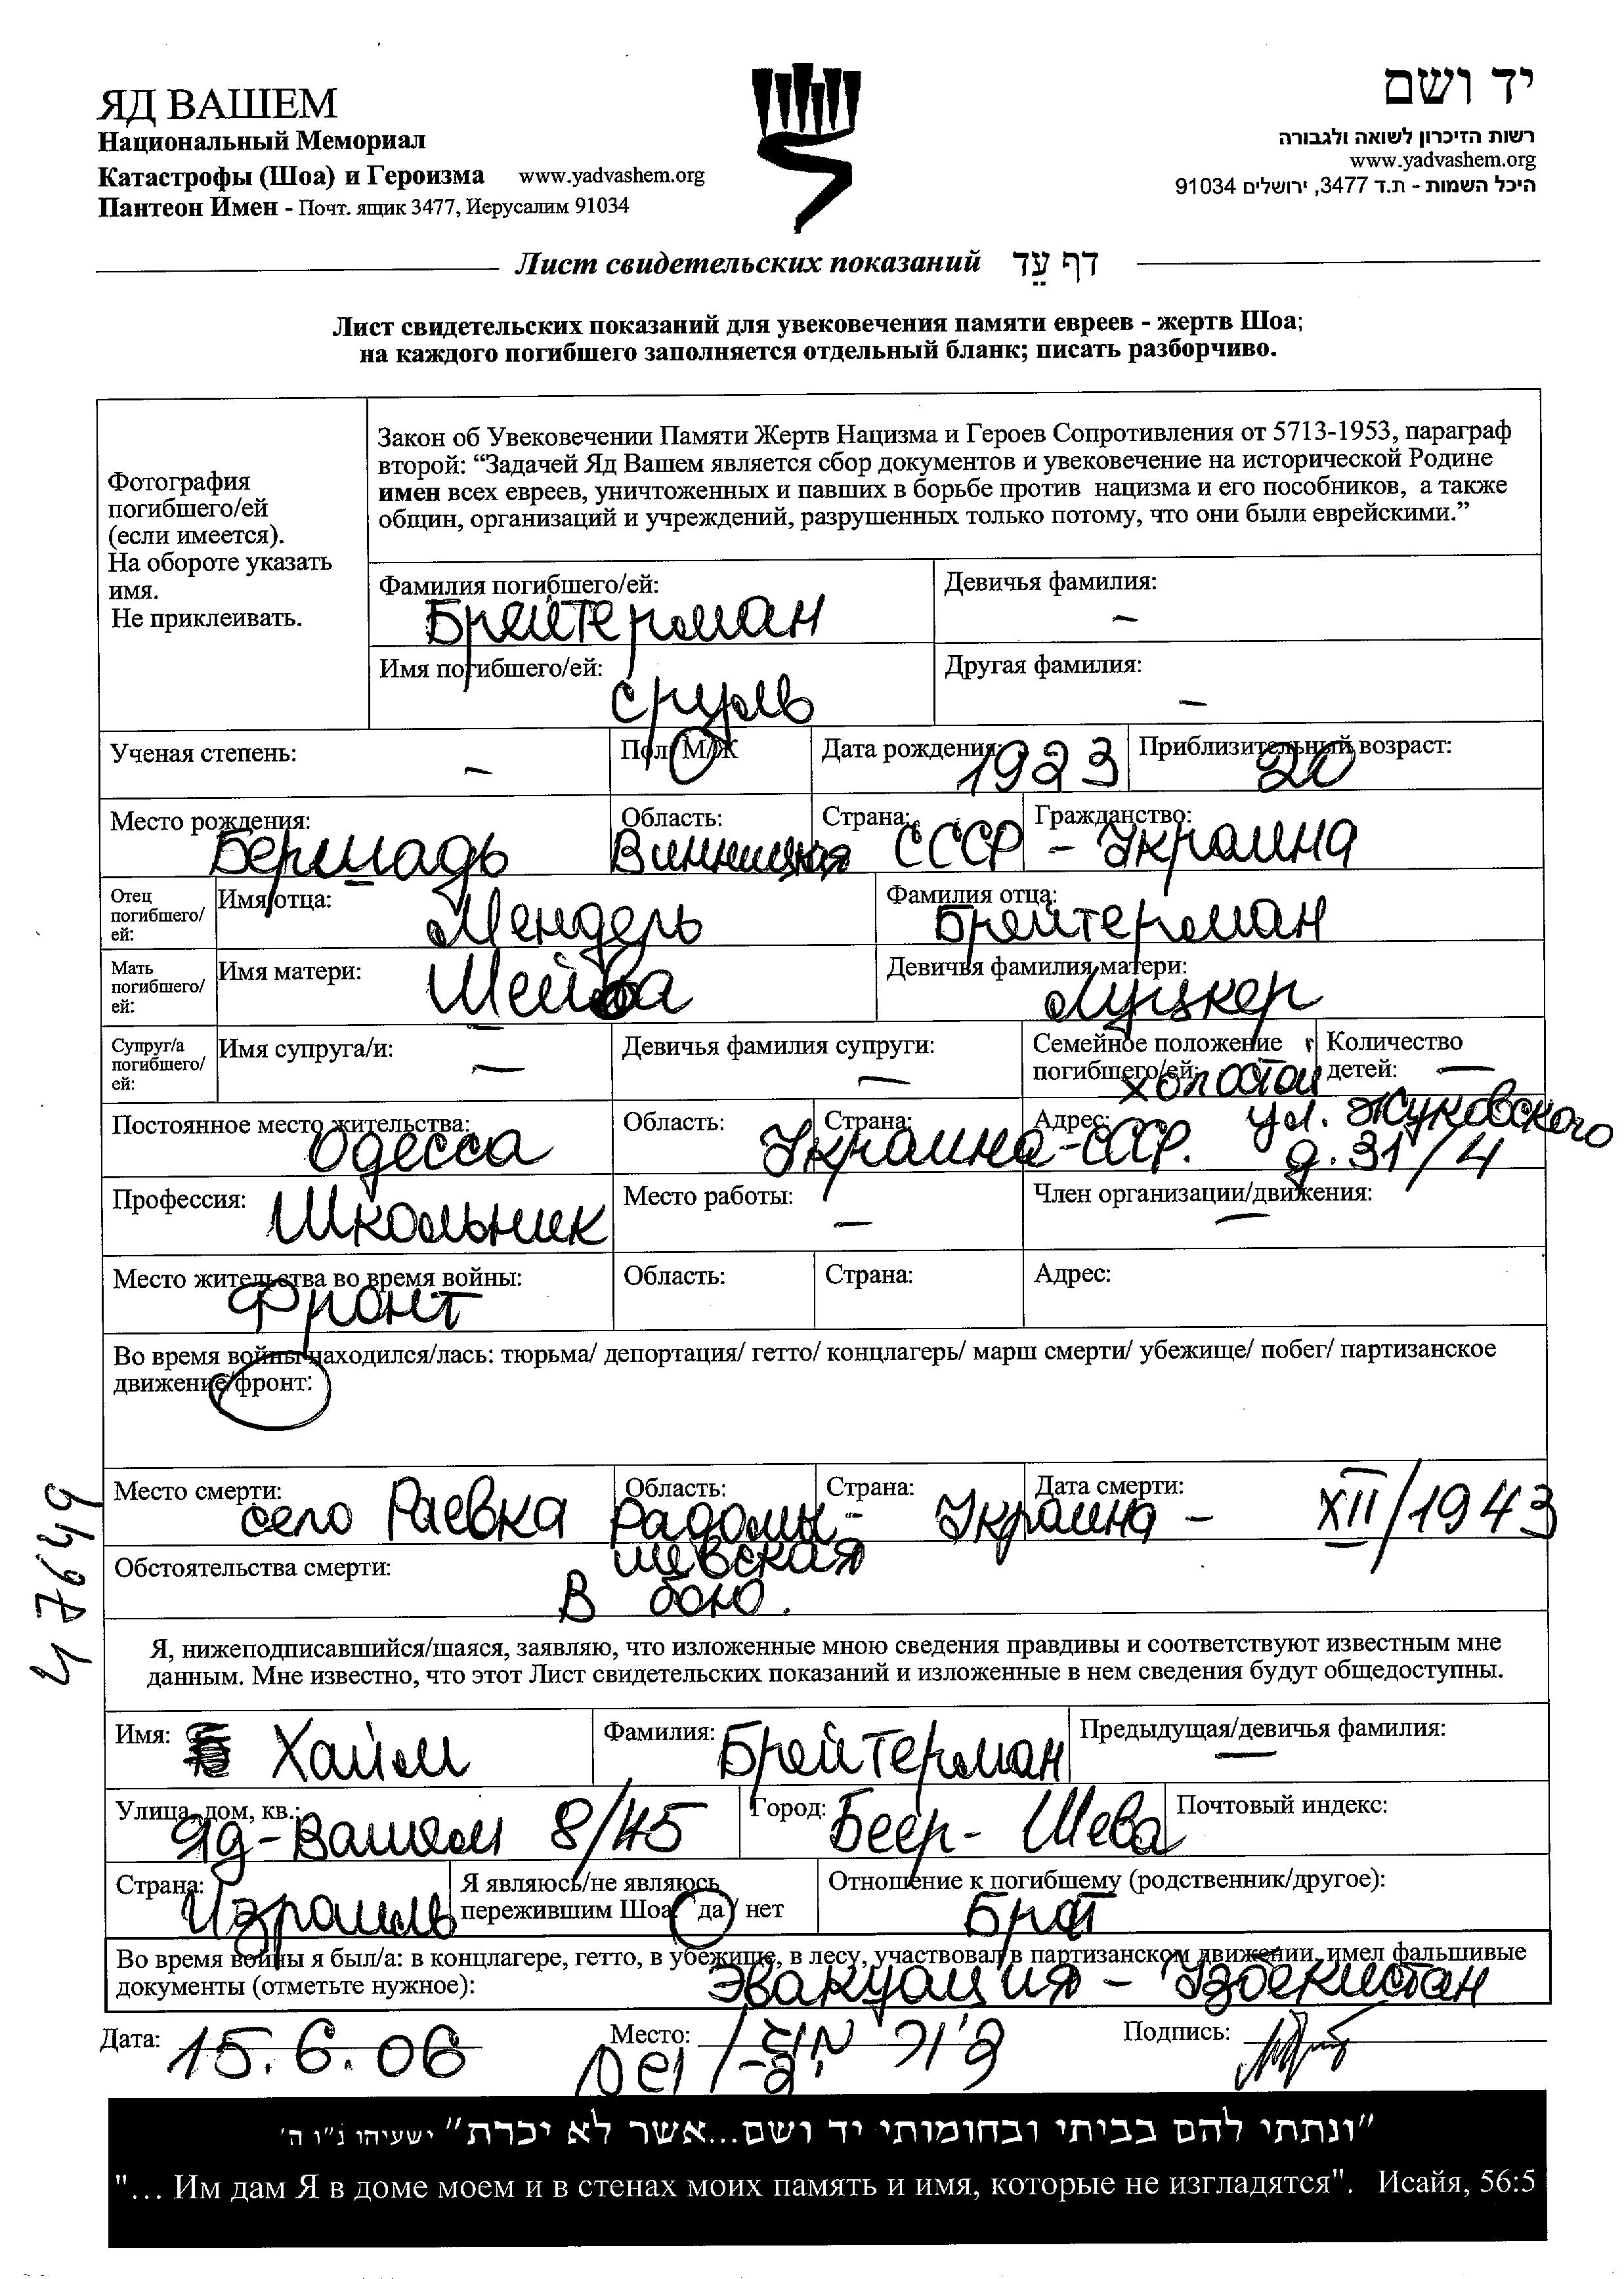 ЯД ВАШЕМ
Национальный Мемориал
Катастрофы (Шоа) и Героизма www.yadvashem.org
Пантеон Имен - Почт. ящик 3477, Иерусалим 91034
יד ושם
רשות הזיכרון לשואה ולגבורה
www.yadvashem.org
היכל השמות - ת.ד 3477, ירושלים 91034
Лист свидетельских показаний דף עֵד
Лист свидетельских показаний для увековечения памяти евреев - жертв Шоа;
на каждого погибшего заполняется отдельный бланк; писать разборчиво.
Фотография
погибшего/ей
(если имеется).
На обороте указать
имя.
Не приклеивать.
Закон об Увековечении Памяти Жертв Нацизма и Героев Сопротивления от 5713-1953, параграф
второй: “Задачей Яд Вашем является сбор документов и увековечение на исторической Родине
имен всех евреев, уничтоженных и павших в борьбе против нацизма и его пособников, а также
общин, организаций и учреждений, разрушенных только потому, что они были еврейскими.”
Фамилия погибшего/ей: Брейтерман
Девичья фамилия: –
Имя погибшего/ей: Сруль
Другая фамилия: –
Ученая степень: –
Пол: М/Ж
Дата рождения: 1923
Приблизительный возраст: 20
Место рождения: Бершадь
Область: Винницкая
Страна: СССР
Гражданство: – Украина
Отец
погибшего/
ей:
Имя отца: Мендель
Фамилия отца: Брейтерман
Мать
погибшего/
ей:
Имя матери: Шейва
Девичья фамилия матери: Луцкер
Супруг/а
погибшего/
ей:
Имя супруга/и: –
Девичья фамилия супруги: –
Семейное положение
погибшего/ей: холостой
Количество
детей: –
Постоянное место жительства: Одесса
Область:
Страна: Украина-СССР.
Адрес: ул. Жуковского
д. 31/4
Профессия: Школьник
Место работы: –
Член организации/движения: –
Место жительства во время войны: Фронт
Область:
Страна:
Адрес:
Во время войны находился/лась: тюрьма/ депортация/ гетто/ концлагерь/ марш смерти/ убежище/ побег/ партизанское
движение/фронт:
Место смерти: село Раевка
Область: Радомы-
шевская
Страна: Украина –
Дата смерти: XII/1943
Обстоятельства смерти: В бою.
Я, нижеподписавшийся/шаяся, заявляю, что изложенные мною сведения правдивы и соответствуют известным мне
данным. Мне известно, что этот Лист свидетельских показаний и изложенные в нем сведения будут общедоступны.
Имя: Хайм
Фамилия: Брейтерман
Предыдущая/девичья фамилия: –
Улица, дом, кв.: Яд-Вашем 8/45
Город: Беер-Шева
Почтовый индекс:
Страна: Израиль
Я являюсь/не являюсь
пережившим Шоа: да / нет
Отношение к погибшему (родственник/другое): Брат
Во время войны я был/а: в концлагере, гетто, в убежище, в лесу, участвовал в партизанском движении, имел фальшивые
документы (отметьте нужное): Эвакуация – Узбекистан
Дата: 15.6.06
Место:
Подпись:
"ונתתי להם בביתי ובחומותי יד ושם...אשר לא יכרת" ישעיהו נ"ו ה'
"... Им дам Я в доме моем и в стенах моих память и имя, которые не изгладятся". Исайя, 56:5